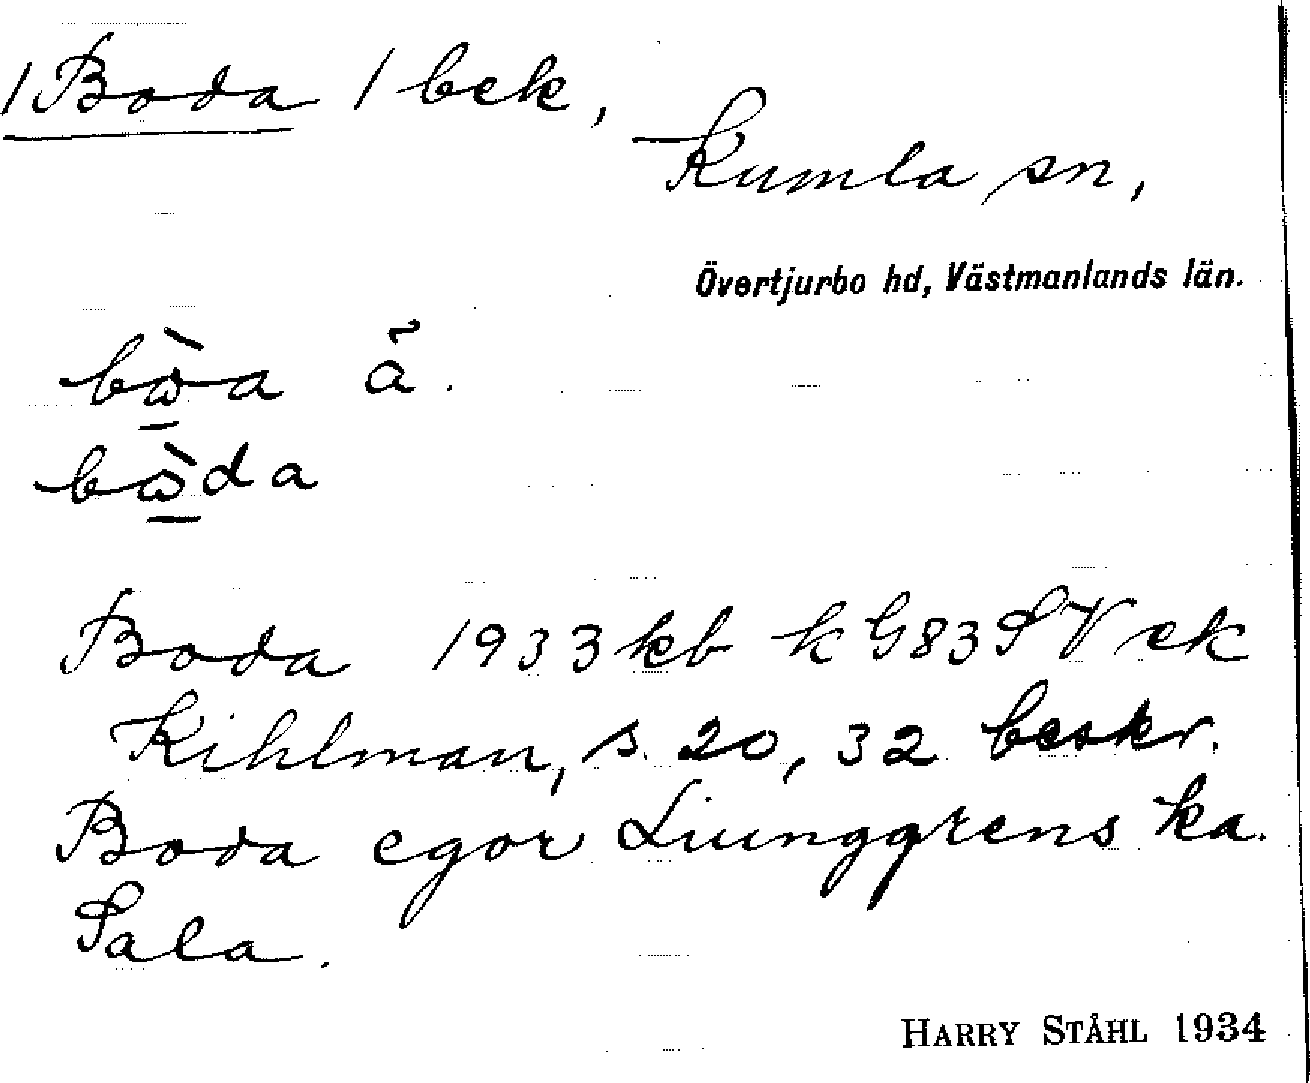 /Boda / bek,
Kumla sn,
Övertjurbo hd, Västmanlands län.
bɷ̀a ã.
bɷ̀da
Boda 1933 kb k G83SV ek
Kihlman, s. 20, 32 beskr.
Boda egor Liunggrens ka.
Sala.
HARRY STÅHL 1934